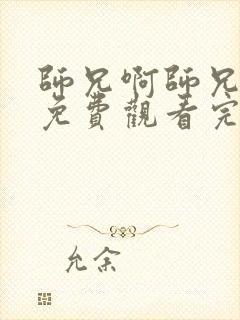 師兄啊師兄
免費觀看完
允余